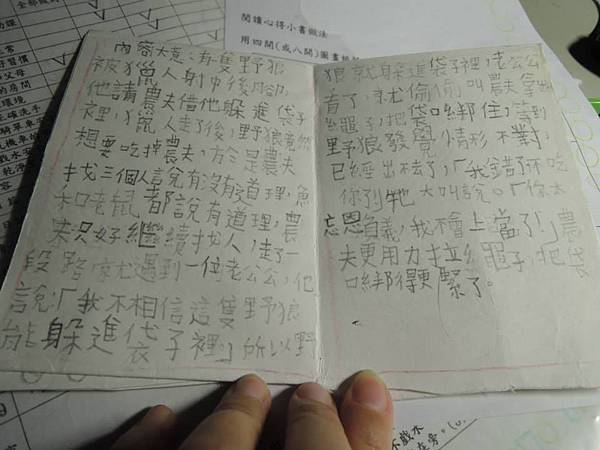 閱讀心得小書做法
用四開(或八開)圖畫紙
內容大意:有隻野狼
被獵人射中後腳,
他請農夫借他躲進袋子
裡,獵人走了後,野狼竟然
想要吃掉農夫,於是農夫
找三個人說有沒有道理,魚
和老鼠都說有道理,農
夫只好繼續找人,走了一
段路,就遇到一位老公公,他
說:「我不相信這隻野狼
能躲進袋子裡。」所以野
狼就躲進袋子裡,老公公
看了,就偷偷叫農夫拿出
繩子,把袋口綁住,等到
野狼發覺情形不對,
已經出不去了,「我錯了不吃
你了」牠大叫說。「你太
忘恩負義,我不會上當了!」農
夫更用力拉繩子,把袋
口綁得更緊了。